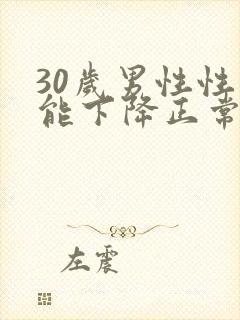 30歲男性性
能下降正常
左震